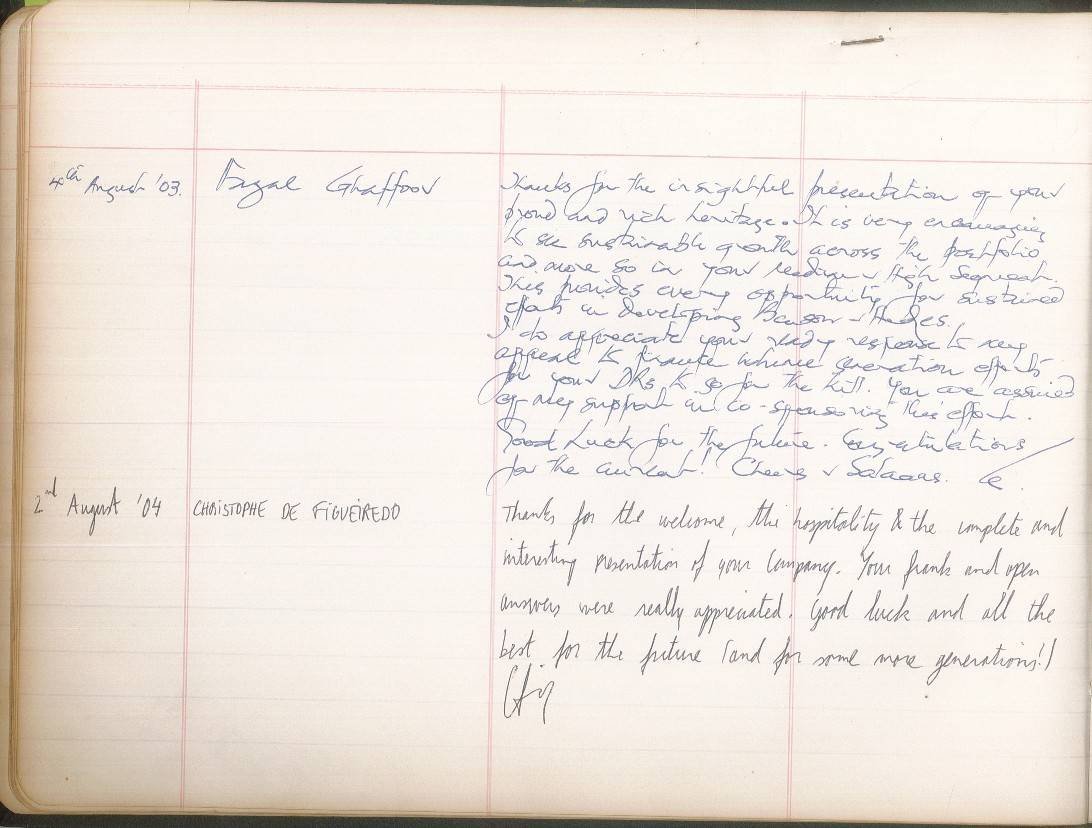 4th August '03. Fazal Ghaffoor Thanks for the insightful presentation of your
proud and rich heritage. It is very encouraging
to see sustainable growth across the portfolio
and more so in your medium & High Segment.
This provides every opportunity for sustained
efforts in Developing Benson & Hedges.
I do appreciate your ready response to my
appeal to finance generation efforts
for your DRs to go for the kill. You are assured
of my support in co-sponsoring this effort.
Good Luck for the future. Congratulations
for the current! Cheers & Salaams.
2nd August '04 CHRISTOPHE DE FIGUEIREDO Thanks for the welcome, the hospitality & the complete and
interesting presentation of your Company. Your frank and open
answers were really appreciated. Good luck and all the
best for the future (and for some more generations!)